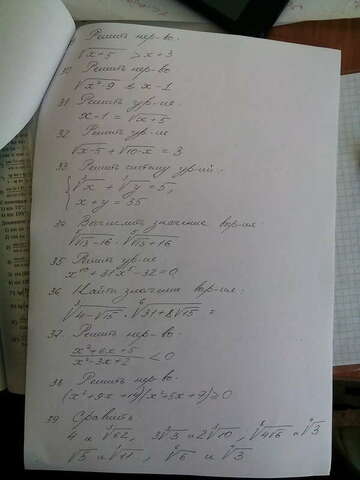 Решить нер-во.
√x+5 > x+3
30 Решить нер-во
√x²-9 ≤ x-1
31 Решить ур-ие.
x-1 = √x+5
32 Решить ур-ие
√x-5 + √10-x = 3
33 Решить систему ур-ий.
{ ³√x + ³√y = 5,
x+y = 35
34 Вычислить значение выр-ия
√13-16 · √13+16
35 Решить ур-ие
x¹⁰+31x⁵-32=0
36 Найти значение выр-ия:
³√4-√15 · ⁶√31+8√15 =
37 Решить нер-во.
x²+6x+5 / x²-3x+2 < 0
38 Решить нер-во.
(x²+9x+14)(x²+5x+9) ≥ 0
39 Сравнить
3√3 и 2√10